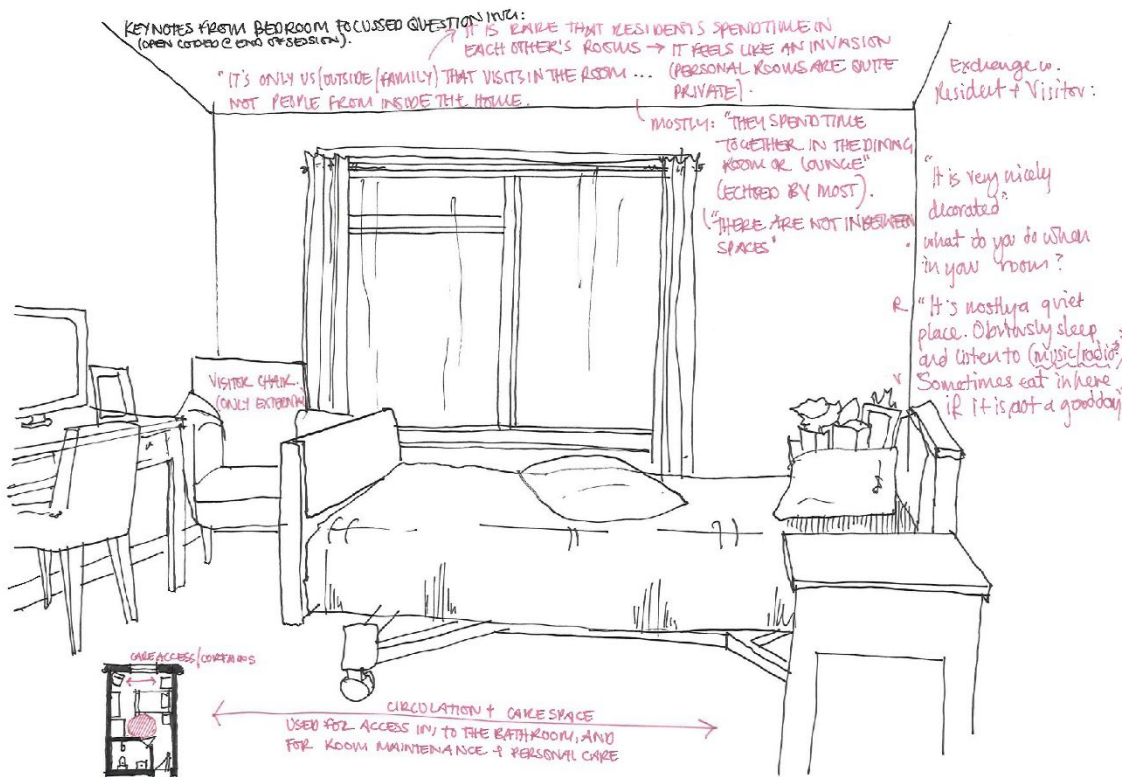 KEYNOTES FROM BEDROOM FOCUSSED QUESTIONING:
(OPEN CODED @ END OF SESSION).
IT IS RARE THAT RESIDENTS SPEND TIME IN
EACH OTHER'S ROOMS → IT FEELS LIKE AN INVASION
(PERSONAL ROOMS ARE QUITE
PRIVATE).
"IT'S ONLY US (OUTSIDE/FAMILY) THAT VISITS IN THE ROOM ...
NOT PEOPLE FROM INSIDE THE HOME.
MOSTLY: "THEY SPEND TIME
TOGETHER IN THE DINING
ROOM OR LOUNGE"
(ECHOED BY MOST).
"THERE ARE NOT IN BETWEEN
SPACES"
Exchange w.
Resident + Visitor:
"It is very nicely
decorated"
what do you do when
in your room?
R "It's mostly a quiet
place. Obviously sleep
and listen to (music/radio?)
V Sometimes eat in here
if it is not a good day"
VISITOR CHAIR.
(ONLY EXTERNAL)
CARE ACCESS/CURTAINS
CIRCULATION + CARE SPACE
USED FOR ACCESS IN, TO THE BATHROOM, AND
FOR ROOM MAINTENANCE + PERSONAL CARE